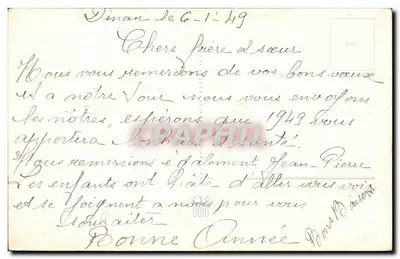 Dinan le 6-1-49
Chers frère et sœur
Nous vous remercions de vos bons vœux
et a notre tour nous vous envoyons
les nôtres, espérons que 1949 vous
apportera bonheur et santé.
Nous remercions également Jean-Pierre
Les enfants ont hâte d'aller vous voir
et se joignent a nous pour vous
souhaiter
Bonne Année
Bons Baisers
CPAPHIL